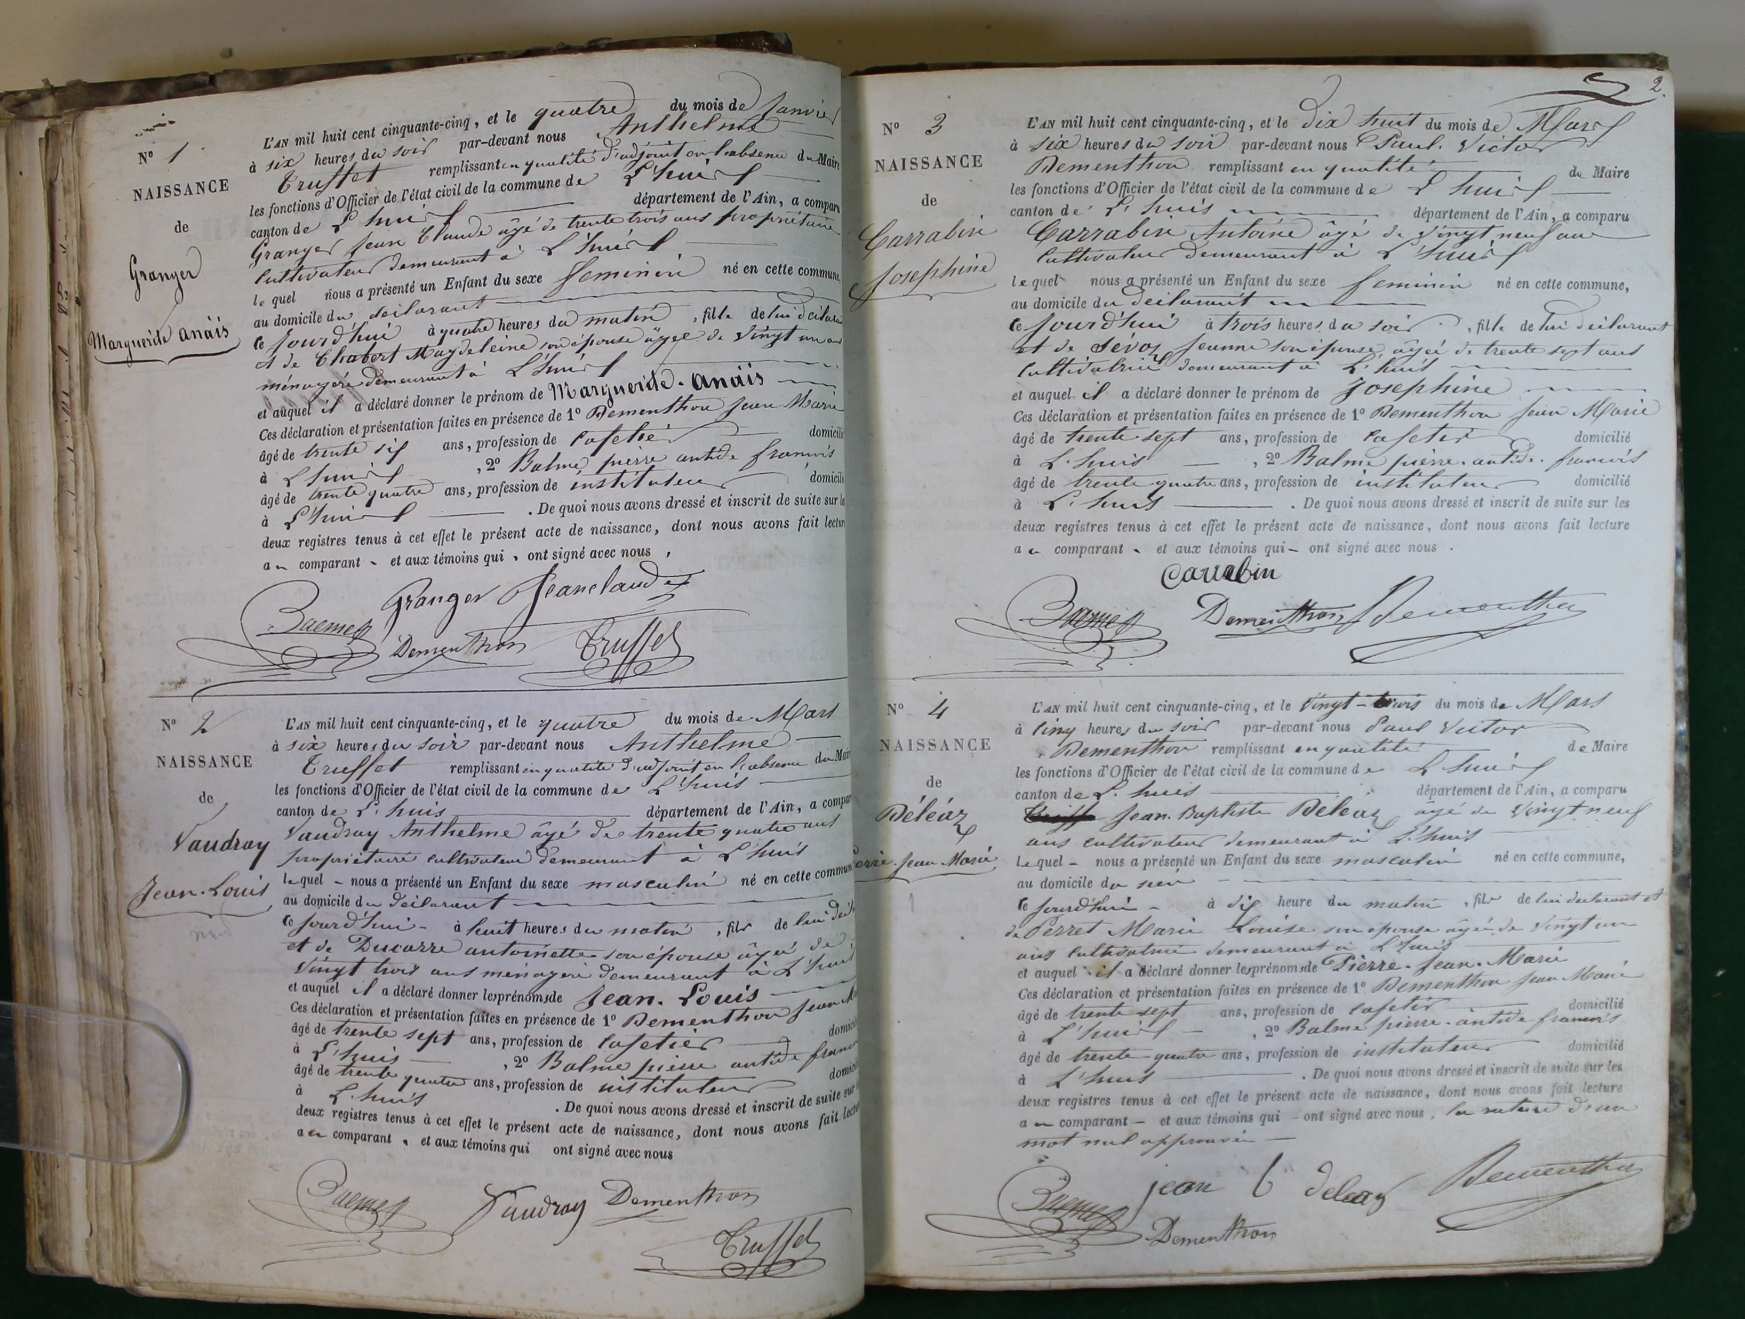 N° 1
NAISSANCE
de
Granger
Margueride Anaïs
L'AN mil huit cent cinquante-cinq, et le quatre du mois de Janvier
à six heures du soir par-devant nous Anthelme
Truffet remplissant en qualité d'adjoint en l'absence du Maire
les fonctions d'Officier de l'état civil de la commune de L'huis
canton de L'huis département de l'Ain, a comparu
Granger Jean Claude âgé de trente trois ans propriétaire
Cultivateur demeurant à L'huis
lequel nous a présenté un Enfant du sexe feminin né en cette commune,
au domicile du déclarant
ce jourd'hui à quatre heures du matin, fille de lui déclarant
et de Chabert Magdeleine son épouse âgée de vingt un ans
ménagère demeurant à L'huis
et auquel il a déclaré donner le prénom de Margueride. Anaïs
Ces déclaration et présentation faites en présence de 1° Dementhon Jean Marie
âgé de trente six ans, profession de cafetier domicilié
à L'huis, 2° Balme pierre antide francois
âgé de trente quatre ans, profession de instituteur domicilié
à L'huis. De quoi nous avons dressé et inscrit de suite sur les
deux registres tenus à cet effet le présent acte de naissance, dont nous avons fait lecture
au comparant et aux témoins qui ont signé avec nous,
Granger Jeanclaude
Baeme
Dementhon Truffet
N° 2
NAISSANCE
de
Vaudray
Jean-Louis
L'AN mil huit cent cinquante-cinq, et le quatre du mois de Mars
à six heures du soir par-devant nous Anthelme
Truffet remplissant en qualité d'adjoint en l'absence du Maire
les fonctions d'Officier de l'état civil de la commune de L'huis
canton de L'huis département de l'Ain, a comparu
Vaudray Anthelme âgé de trente quatre ans
propriétaire cultivateur demeurant à L'huis
lequel nous a présenté un Enfant du sexe masculin né en cette commune
au domicile du déclarant
ce jourd'hui à huit heures du matin, fils de lui décl
et de Ducarre antoinette son épouse âgée de
vingt trois ans menagère demeurant à L'huis
et auquel il a déclaré donner les prénoms de Jean. Louis
Ces déclaration et présentation faites en présence de 1° Dementhon Jean Ma
âgé de trente sept ans, profession de Cafetier domicil
à L'huis, 2° Balme pierre antide franco
âgé de trente quatre ans, profession de instituteur domici
à L'huis. De quoi nous avons dressé et inscrit de suite sur
deux registres tenus à cet effet le présent acte de naissance, dont nous avons fait lectu
au comparant, et aux témoins qui ont signé avec nous
Baeme Vaudray Dementhon
Truffet
2.
N° 3
NAISSANCE
de
Carrabin
Josephine
L'AN mil huit cent cinquante-cinq, et le dix huit du mois de Mars
à six heures du soir par-devant nous Paul. Victor
Dementhon remplissant en qualité de Maire
les fonctions d'Officier de l'état civil de la commune de L'huis
canton de L'huis département de l'Ain, a comparu
Carrabin Antoine âgé de vingt neuf ans
Cultivateur demeurant à L'huis
lequel nous a présenté un Enfant du sexe feminin né en cette commune,
au domicile du déclarant
ce jourd'hui à trois heures du soir, fille de lui déclarant
et de Sevoz Jeanne son épouse âgée de trente sept ans
Cultivatrice demeurant à L'huis
et auquel il a déclaré donner le prénom de Josephine
Ces déclaration et présentation faites en présence de 1° Dementhon Jean Marie
âgé de trente sept ans, profession de cafetier domicilié
à L'huis, 2° Balme pierre. antide. francois
âgé de trente quatre ans, profession de instituteur domicilié
à L'huis. De quoi nous avons dressé et inscrit de suite sur les
deux registres tenus à cet effet le présent acte de naissance, dont nous avons fait lecture
au comparant et aux témoins qui ont signé avec nous.
Carrabin
Baeme Dementhon Dementhon
N° 4
NAISSANCE
de
Déléaz
Pierre. Jean. Marie
L'AN mil huit cent cinquante-cinq, et le vingt-trois du mois de Mars
à cinq heures du soir par-devant nous Paul Victor
Dementhon remplissant en qualité de Maire
les fonctions d'Officier de l'état civil de la commune de L'huis
canton de L'huis département de l'Ain, a comparu
Jean. Baptiste Deleaz âgé de vingt neuf
ans cultivateur demeurant à L'huis
lequel nous a présenté un Enfant du sexe masculin né en cette commune,
au domicile du sien
ce jourd'hui à dix heure du matin, fils de lui déclarant et
de Perret Marie Louise son épouse âgée de vingt un
ans cultivatrice demeurant à L'huis
et auquel il a déclaré donner les prénoms de Pierre. Jean. Marie
Ces déclaration et présentation faites en présence de 1° Dementhon Jean Marie
âgé de trente sept ans, profession de cafetier domicilié
à L'huis, 2° Balme pierre. antide francois
âgé de trente quatre ans, profession de instituteur domicilié
à L'huis. De quoi nous avons dressé et inscrit de suite sur les
deux registres tenus à cet effet le présent acte de naissance, dont nous avons fait lecture
au comparant et aux témoins qui ont signé avec nous. la rature d'un
mot nul approuvée
Baeme jean b deleaz Dementhon
Dementhon